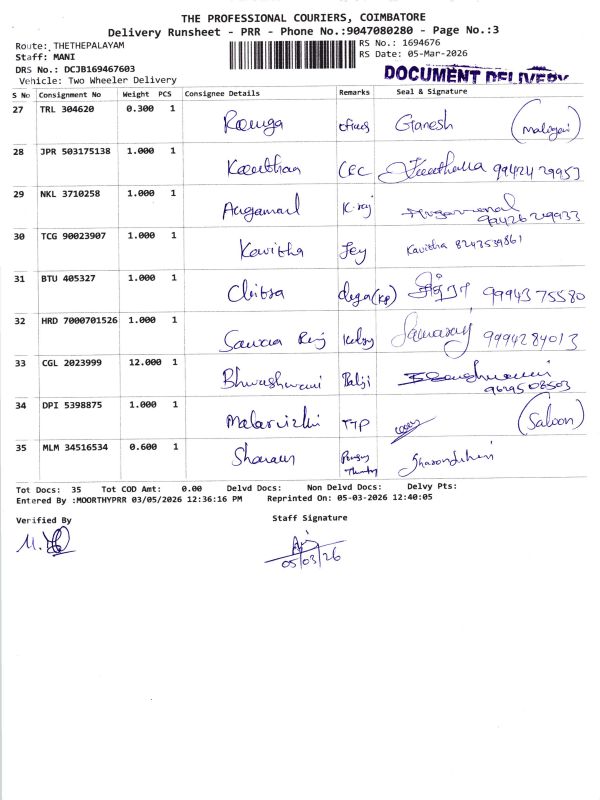 THE PROFESSIONAL COURIERS, COIMBATORE
Delivery Runsheet - PRR - Phone No.:9047080280 - Page No.:3
Route: THETHEPALAYAM RS No.: 1694676
Staff: MANI RS Date: 05-Mar-2026
DRS No.: DCJB169467603
Vehicle: Two Wheeler Delivery DOCUMENT DELIVERY
S No Consignment No Weight PCS Consignee Details Remarks Seal & Signature
27 TRL 304620 0.300 1 Ganesh
28 JPR 503175138 1.000 1 CEC 9942429953
29 NKL 3710258 1.000 1 9942629933
30 TCG 90023907 1.000 1 Kavitha Kavitha 8242539861
31 BTU 405327 1.000 1 Chitra 9994375580
32 HRD 7000701526 1.000 1 9994284013
33 CGL 2023999 12.000 1 Balji 9629508503
34 DPI 5398875 1.000 1 Malarvizhi TTP (Saloon)
35 MLM 34516534 0.600 1
Tot Docs: 35 Tot COD Amt: 0.00 Delvd Docs: Non Delvd Docs: Delvy Pts:
Entered By :MOORTHYPRR 03/05/2026 12:36:16 PM Reprinted On: 05-03-2026 12:40:05
Verified By Staff Signature
05/03/26